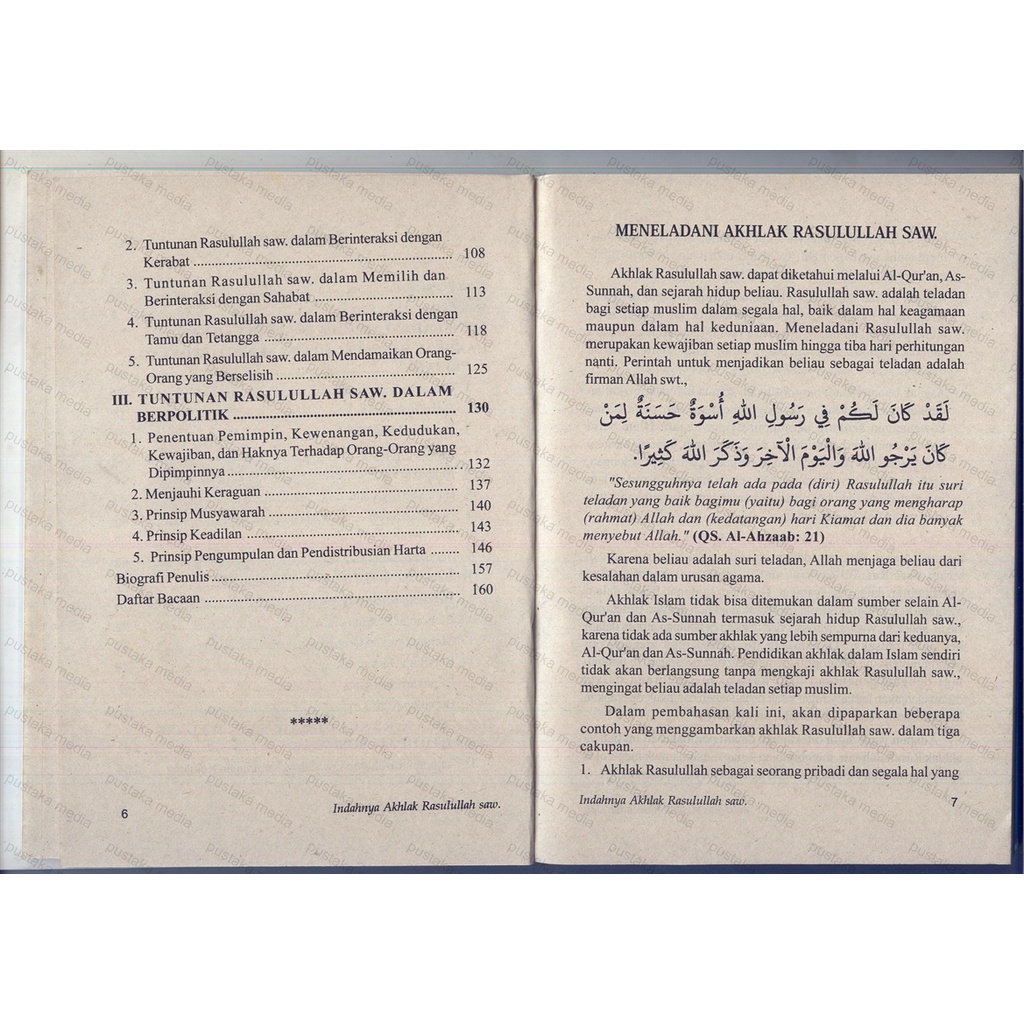 2. Tuntunan Rasulullah saw. dalam Berinteraksi dengan
Kerabat .......... 108
3. Tuntunan Rasulullah saw. dalam Memilih dan
Berinteraksi dengan Sahabat .......... 113
4. Tuntunan Rasulullah saw. dalam Berinteraksi dengan
Tamu dan Tetangga .......... 118
5. Tuntunan Rasulullah saw. dalam Mendamaikan Orang-
Orang yang Berselisih .......... 125
III. TUNTUNAN RASULULLAH SAW. DALAM
BERPOLITIK .......... 130
1. Penentuan Pemimpin, Kewenangan, Kedudukan,
Kewajiban, dan Haknya Terhadap Orang-Orang yang
Dipimpinnya .......... 132
2. Menjauhi Keraguan .......... 137
3. Prinsip Musyawarah .......... 140
4. Prinsip Keadilan .......... 143
5. Prinsip Pengumpulan dan Pendistribusian Harta ....... 146
Biografi Penulis .......... 157
Daftar Bacaan .......... 160
*****
6
Indahnya Akhlak Rasulullah saw.
MENELADANI AKHLAK RASULULLAH SAW.
Akhlak Rasulullah saw. dapat diketahui melalui Al-Qur'an, As-
Sunnah, dan sejarah hidup beliau. Rasulullah saw. adalah teladan
bagi setiap muslim dalam segala hal, baik dalam hal keagamaan
maupun dalam hal keduniaan. Meneladani Rasulullah saw.
merupakan kewajiban setiap muslim hingga tiba hari perhitungan
nanti. Perintah untuk menjadikan beliau sebagai teladan adalah
firman Allah swt.,
لَقَدْ كَانَ لَكُمْ فِي رَسُولِ اللهِ أُسْوَةٌ حَسَنَةٌ لِمَنْ
كَانَ يَرْجُو اللهَ وَالْيَوْمَ الْآخِرَ وَذَكَرَ اللهَ كَثِيرًا.
"Sesungguhnya telah ada pada (diri) Rasulullah itu suri
teladan yang baik bagimu (yaitu) bagi orang yang mengharap
(rahmat) Allah dan (kedatangan) hari Kiamat dan dia banyak
menyebut Allah." (QS. Al-Ahzaab: 21)
Karena beliau adalah suri teladan, Allah menjaga beliau dari
kesalahan dalam urusan agama.
Akhlak Islam tidak bisa ditemukan dalam sumber selain Al-
Qur'an dan As-Sunnah termasuk sejarah hidup Rasulullah saw.,
karena tidak ada sumber akhlak yang lebih sempurna dari keduanya,
Al-Qur'an dan As-Sunnah. Pendidikan akhlak dalam Islam sendiri
tidak akan berlangsung tanpa mengkaji akhlak Rasulullah saw.,
mengingat beliau adalah teladan setiap muslim.
Dalam pembahasan kali ini, akan dipaparkan beberapa
contoh yang menggambarkan akhlak Rasulullah saw. dalam tiga
cakupan.
1. Akhlak Rasulullah sebagai seorang pribadi dan segala hal yang
Indahnya Akhlak Rasulullah saw.
7
pustaka media